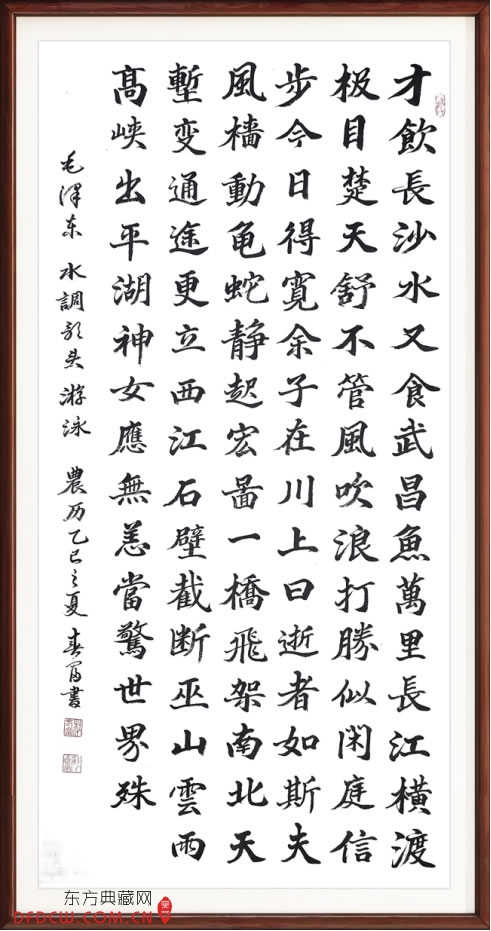 才飲長沙水又食武昌魚萬里長江橫渡
极目楚天舒不管風吹浪打勝似闲庭信
步今日得寬余子在川上曰逝者如斯夫
風檣動龟蛇静起宏啚一橋飛架南北天
塹变通途更立西江石壁截断巫山雲雨
髙峡出平湖神女應無恙當驚世界殊
毛泽东 水調歌头 游泳 農历乙巳之夏 春富書
东方典藏网
DFDCW.COM.CN